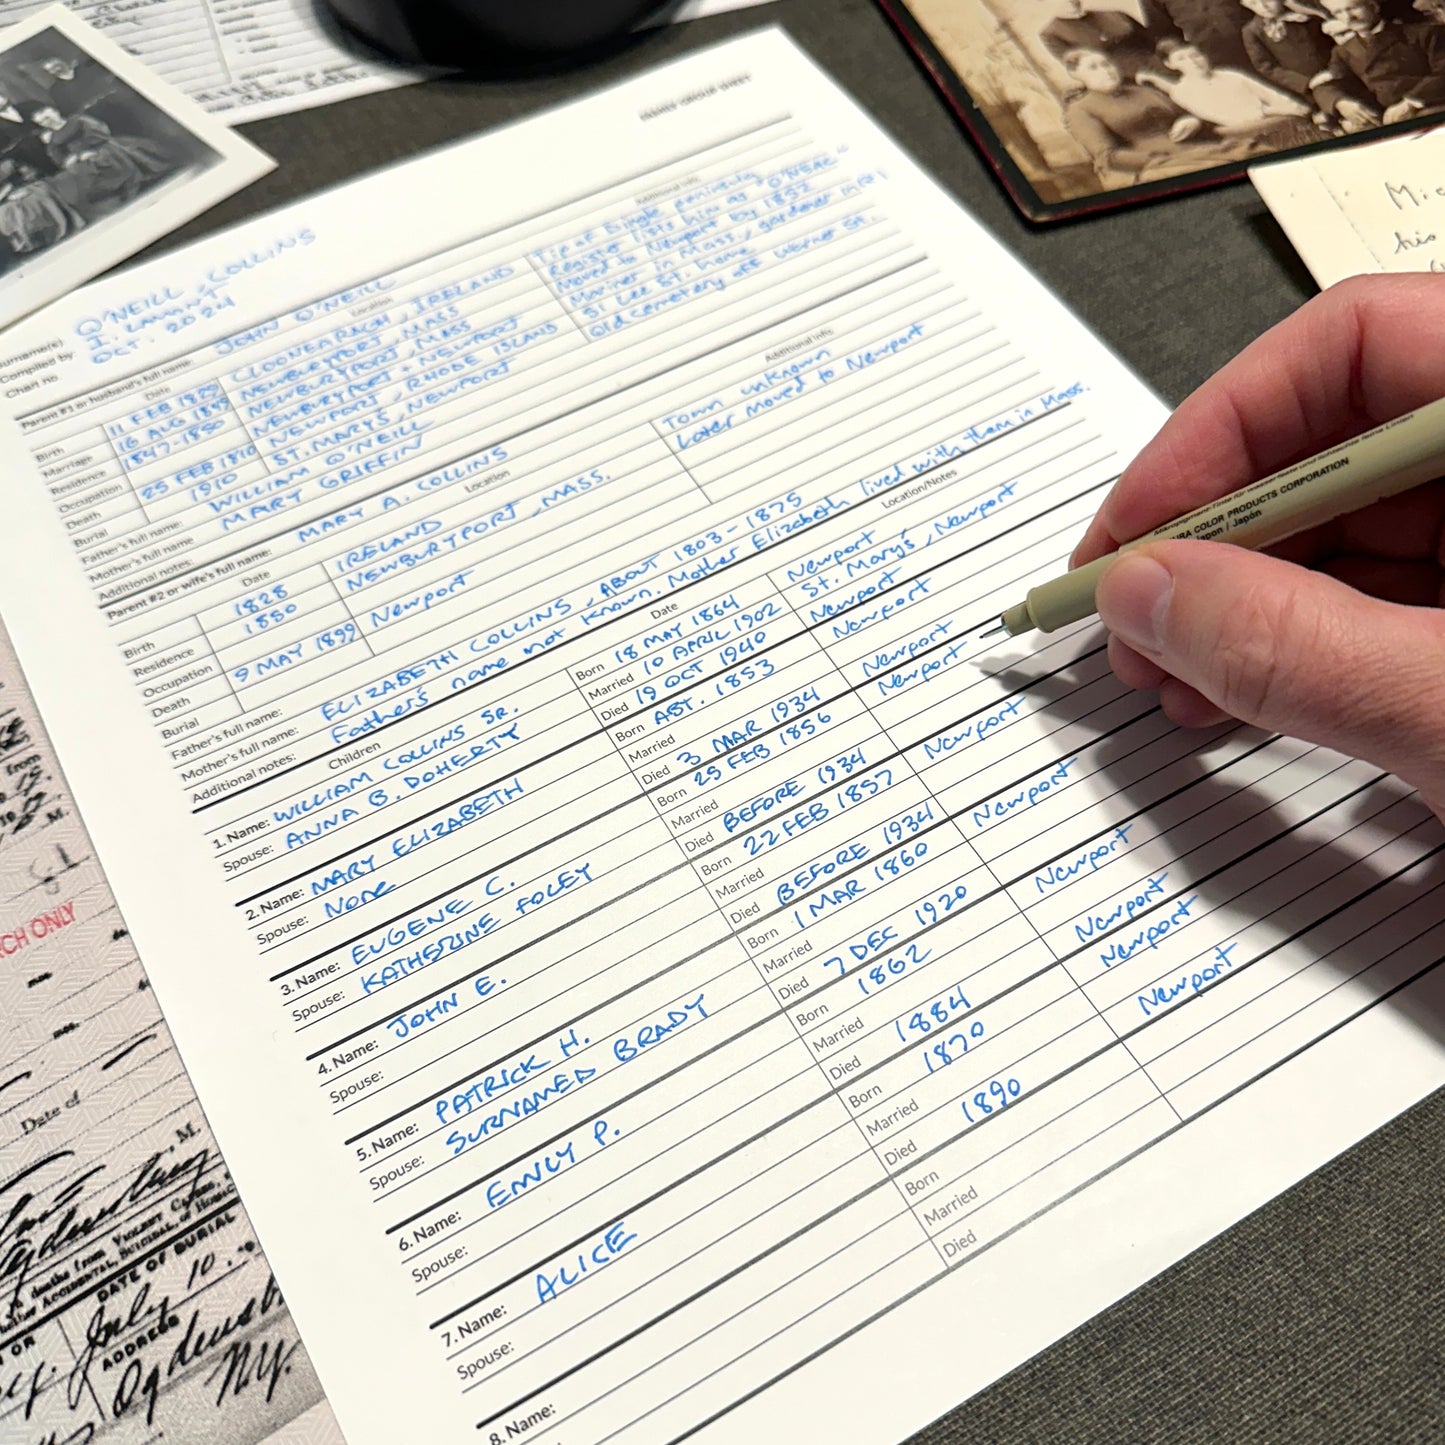 FAMILY GROUP SHEET
Surname(s) O'NEILL, COLLINS
Compiled by I. LAMNT
Chart no. OCT. 2024
Parent #1 or husband's full name: JOHN O'NEILL
Date Location Additional info
Birth 11 FEB 1829 CLOONEARAGH, IRELAND
Marriage 16 AUG NEWBURYPORT, MASS
Residence 1847-1850 NEWBURYPORT, MASS
Occupation NEWBURYPORT + NEWPORT
Death 25 FEB 1910 NEWPORT, RHODE ISLAND
Burial 1910 ST. MARY'S, NEWPORT
Register lists him as "O'NEAL"
Moved to Newport by 1852
Mariner in Mass, gardener in RI
Lee St. home
Old cemetery off Warner St.
Father's full name: WILLIAM O'NEILL
Mother's full name MARY GRIFFIN
Additional notes:
Parent #2 or wife's full name: MARY A. COLLINS
Date Location Additional info
Birth 1828 IRELAND Town unknown
Residence 1850 NEWBURYPORT, MASS. Later moved to Newport
Occupation
Death 9 MAY 1899 Newport
Burial
Father's full name:
Mother's full name: ELIZABETH COLLINS, ABOUT 1803-1875
Additional notes: Father's name not known. Mother Elizabeth lived with them in Mass.
Children Date Location/Notes
1. Name: WILLIAM COLLINS SR. Born 18 MAY 1864 Newport
Spouse: ANNA B. DOHERTY Married 10 APRIL 1902 St. Mary's, Newport
Died 19 OCT 1940 Newport
2. Name: MARY ELIZABETH Born ABT. 1853 Newport
Spouse: None Married
Died 3 MAR 1934 Newport
3. Name: EUGENE C. Born 25 FEB 1856 Newport
Spouse: KATHERINE FOLEY Married
Died BEFORE 1934
4. Name: JOHN E. Born 22 FEB 1857 Newport
Spouse: Married
Died BEFORE 1934
5. Name: PATRICK H. Born 1 MAR 1860 Newport
Spouse: SURNAMED BRADY Married
Died 7 DEC 1920
6. Name: EMILY P. Born 1862 Newport
Spouse: Married
Died 1884 Newport
7. Name: ALICE Born 1870 Newport
Spouse: Married
Died 1890 Newport
8. Name: Born
Married
Died
Mikropigment-Tinte für wasserfeste und lichtechte feine Linien
URA COLOR PRODUCTS CORPORATION
Japon / Japón
his
CH ONLY
Date of
M.
DATE OF BURIAL
July 10
ADDRESS
Ogdensb
NY.